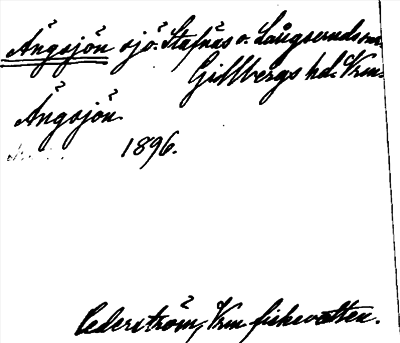 Ängsjön sjö. Stafnäs o. Långseruds snr.
Gillbergs hd. Vrm.
Ängsjön
1896.
Cederström, Vrm fiskevatten.